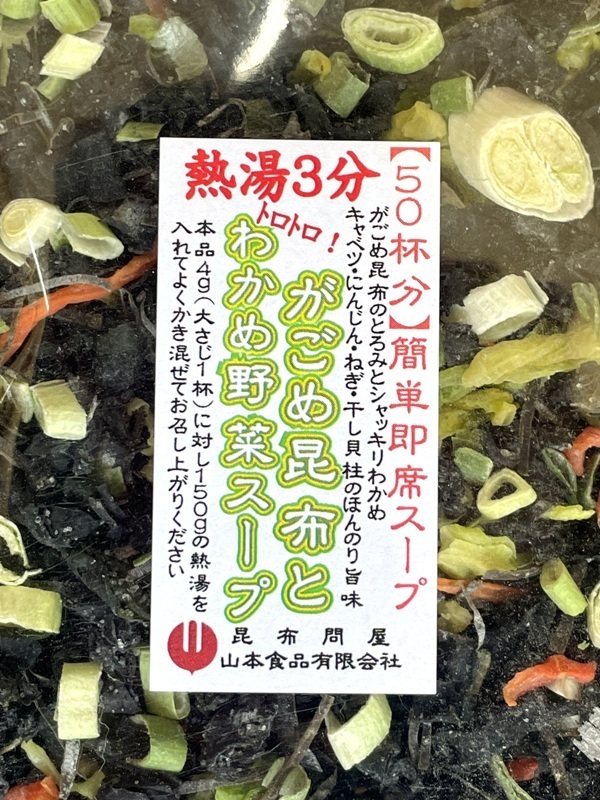 熱湯3分
【50杯分】簡単即席スープ
がごめ昆布のとろみとシャッキリわかめ
キャベツ・にんじん・ねぎ・干し貝柱のほんのり旨味
トロトロ!
がごめ昆布と
わかめ野菜スープ
本品4g(大さじ1杯)に対し150gの熱湯を
入れてよくかき混ぜてお召し上がりください
昆布問屋
山本食品有限会社